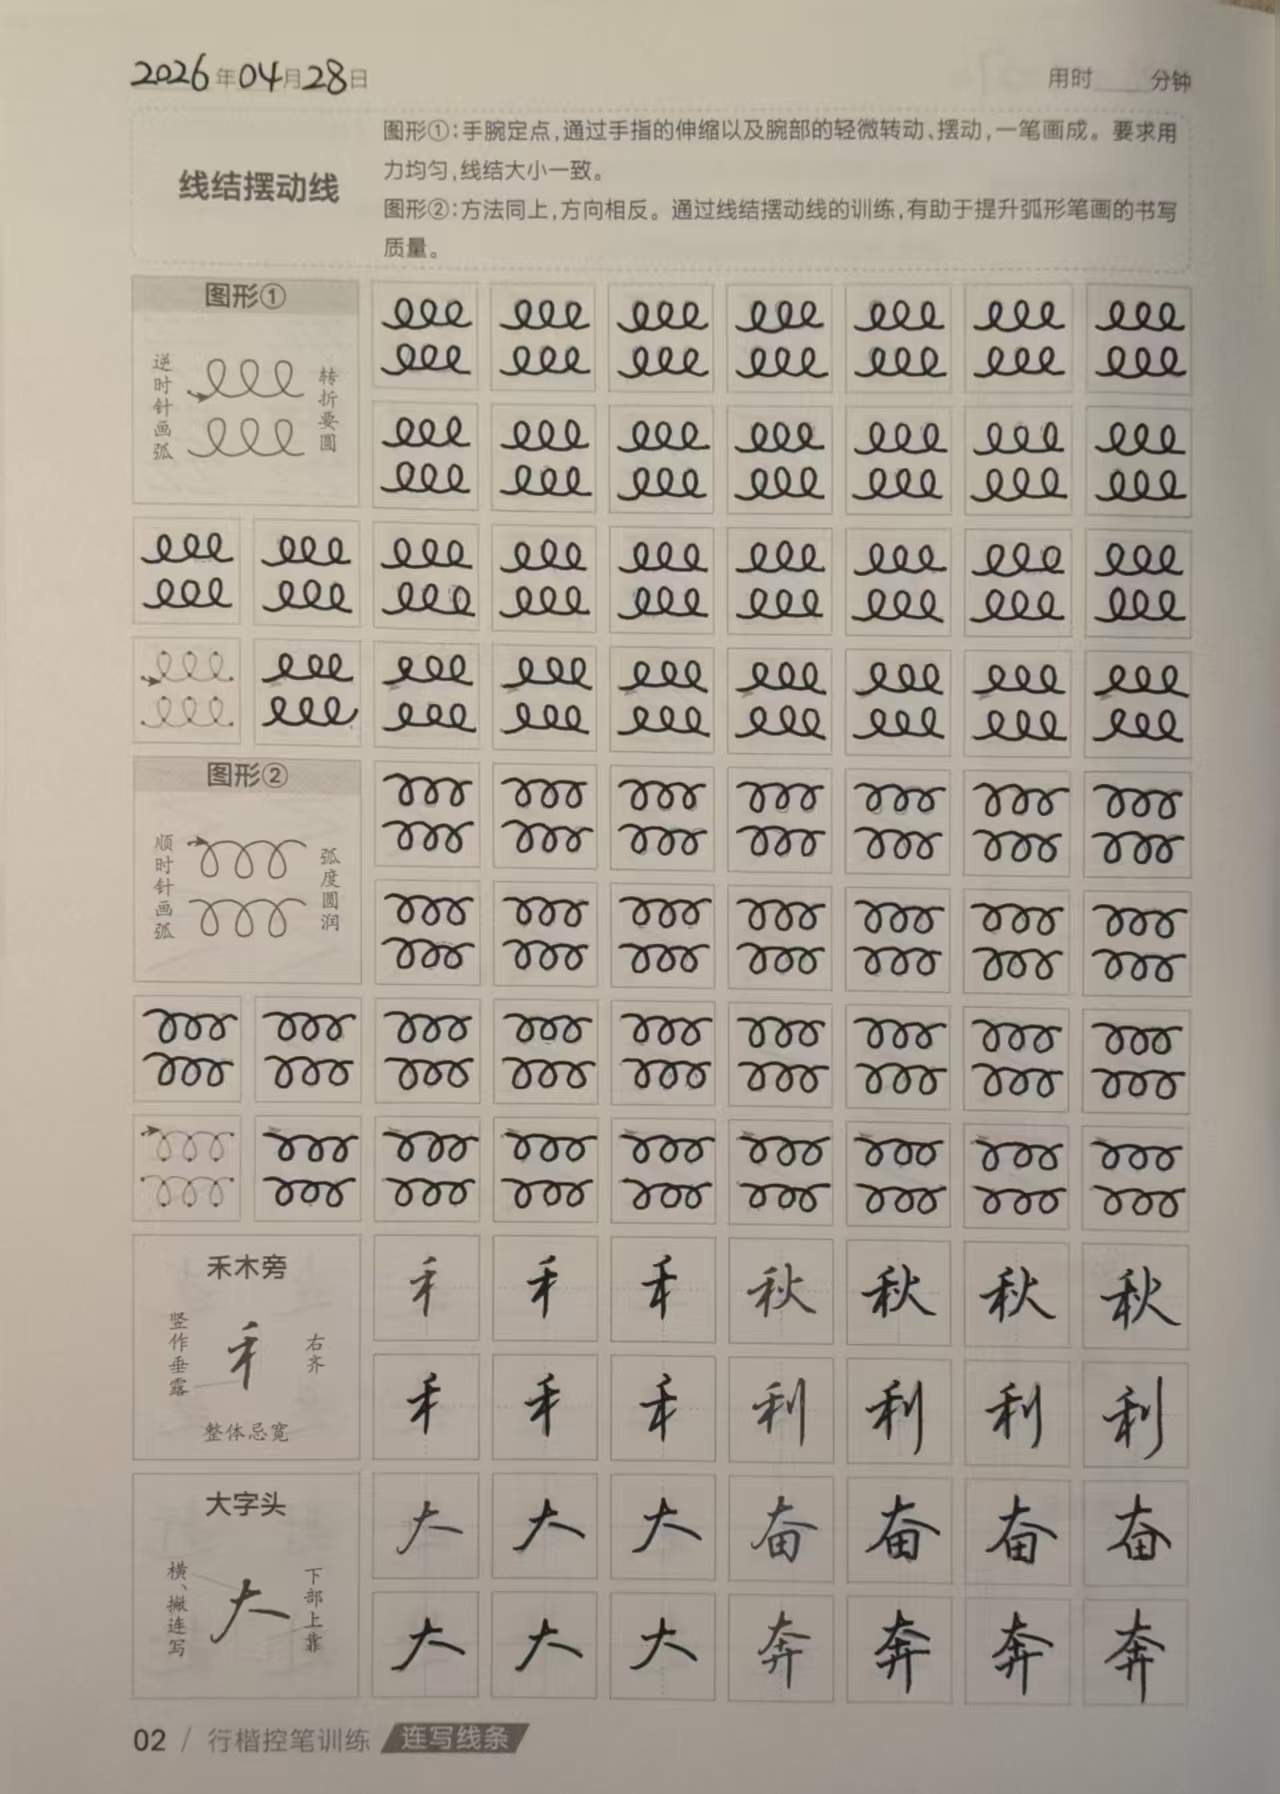 2026年04月28日 用时 分钟
线结摆动线
图形①：手腕定点，通过手指的伸缩以及腕部的轻微转动、摆动，一笔画成。要求用
力均匀，线结大小一致。
图形②：方法同上，方向相反。通过线结摆动线的训练，有助于提升弧形笔画的书写
质量。
图形①
逆时针画弧
转折要圆
图形②
顺时针画弧
弧度圆润
禾木旁
竖作垂露
禾
右齐
整体忌宽
禾 禾 禾 秋 秋 秋 秋
禾 禾 禾 利 利 利 利
大字头
横、撇连写
大
下部上靠
大 大 大 奋 奋 奋 奋
大 大 大 奔 奔 奔 奔
02 / 行楷控笔训练 连写线条